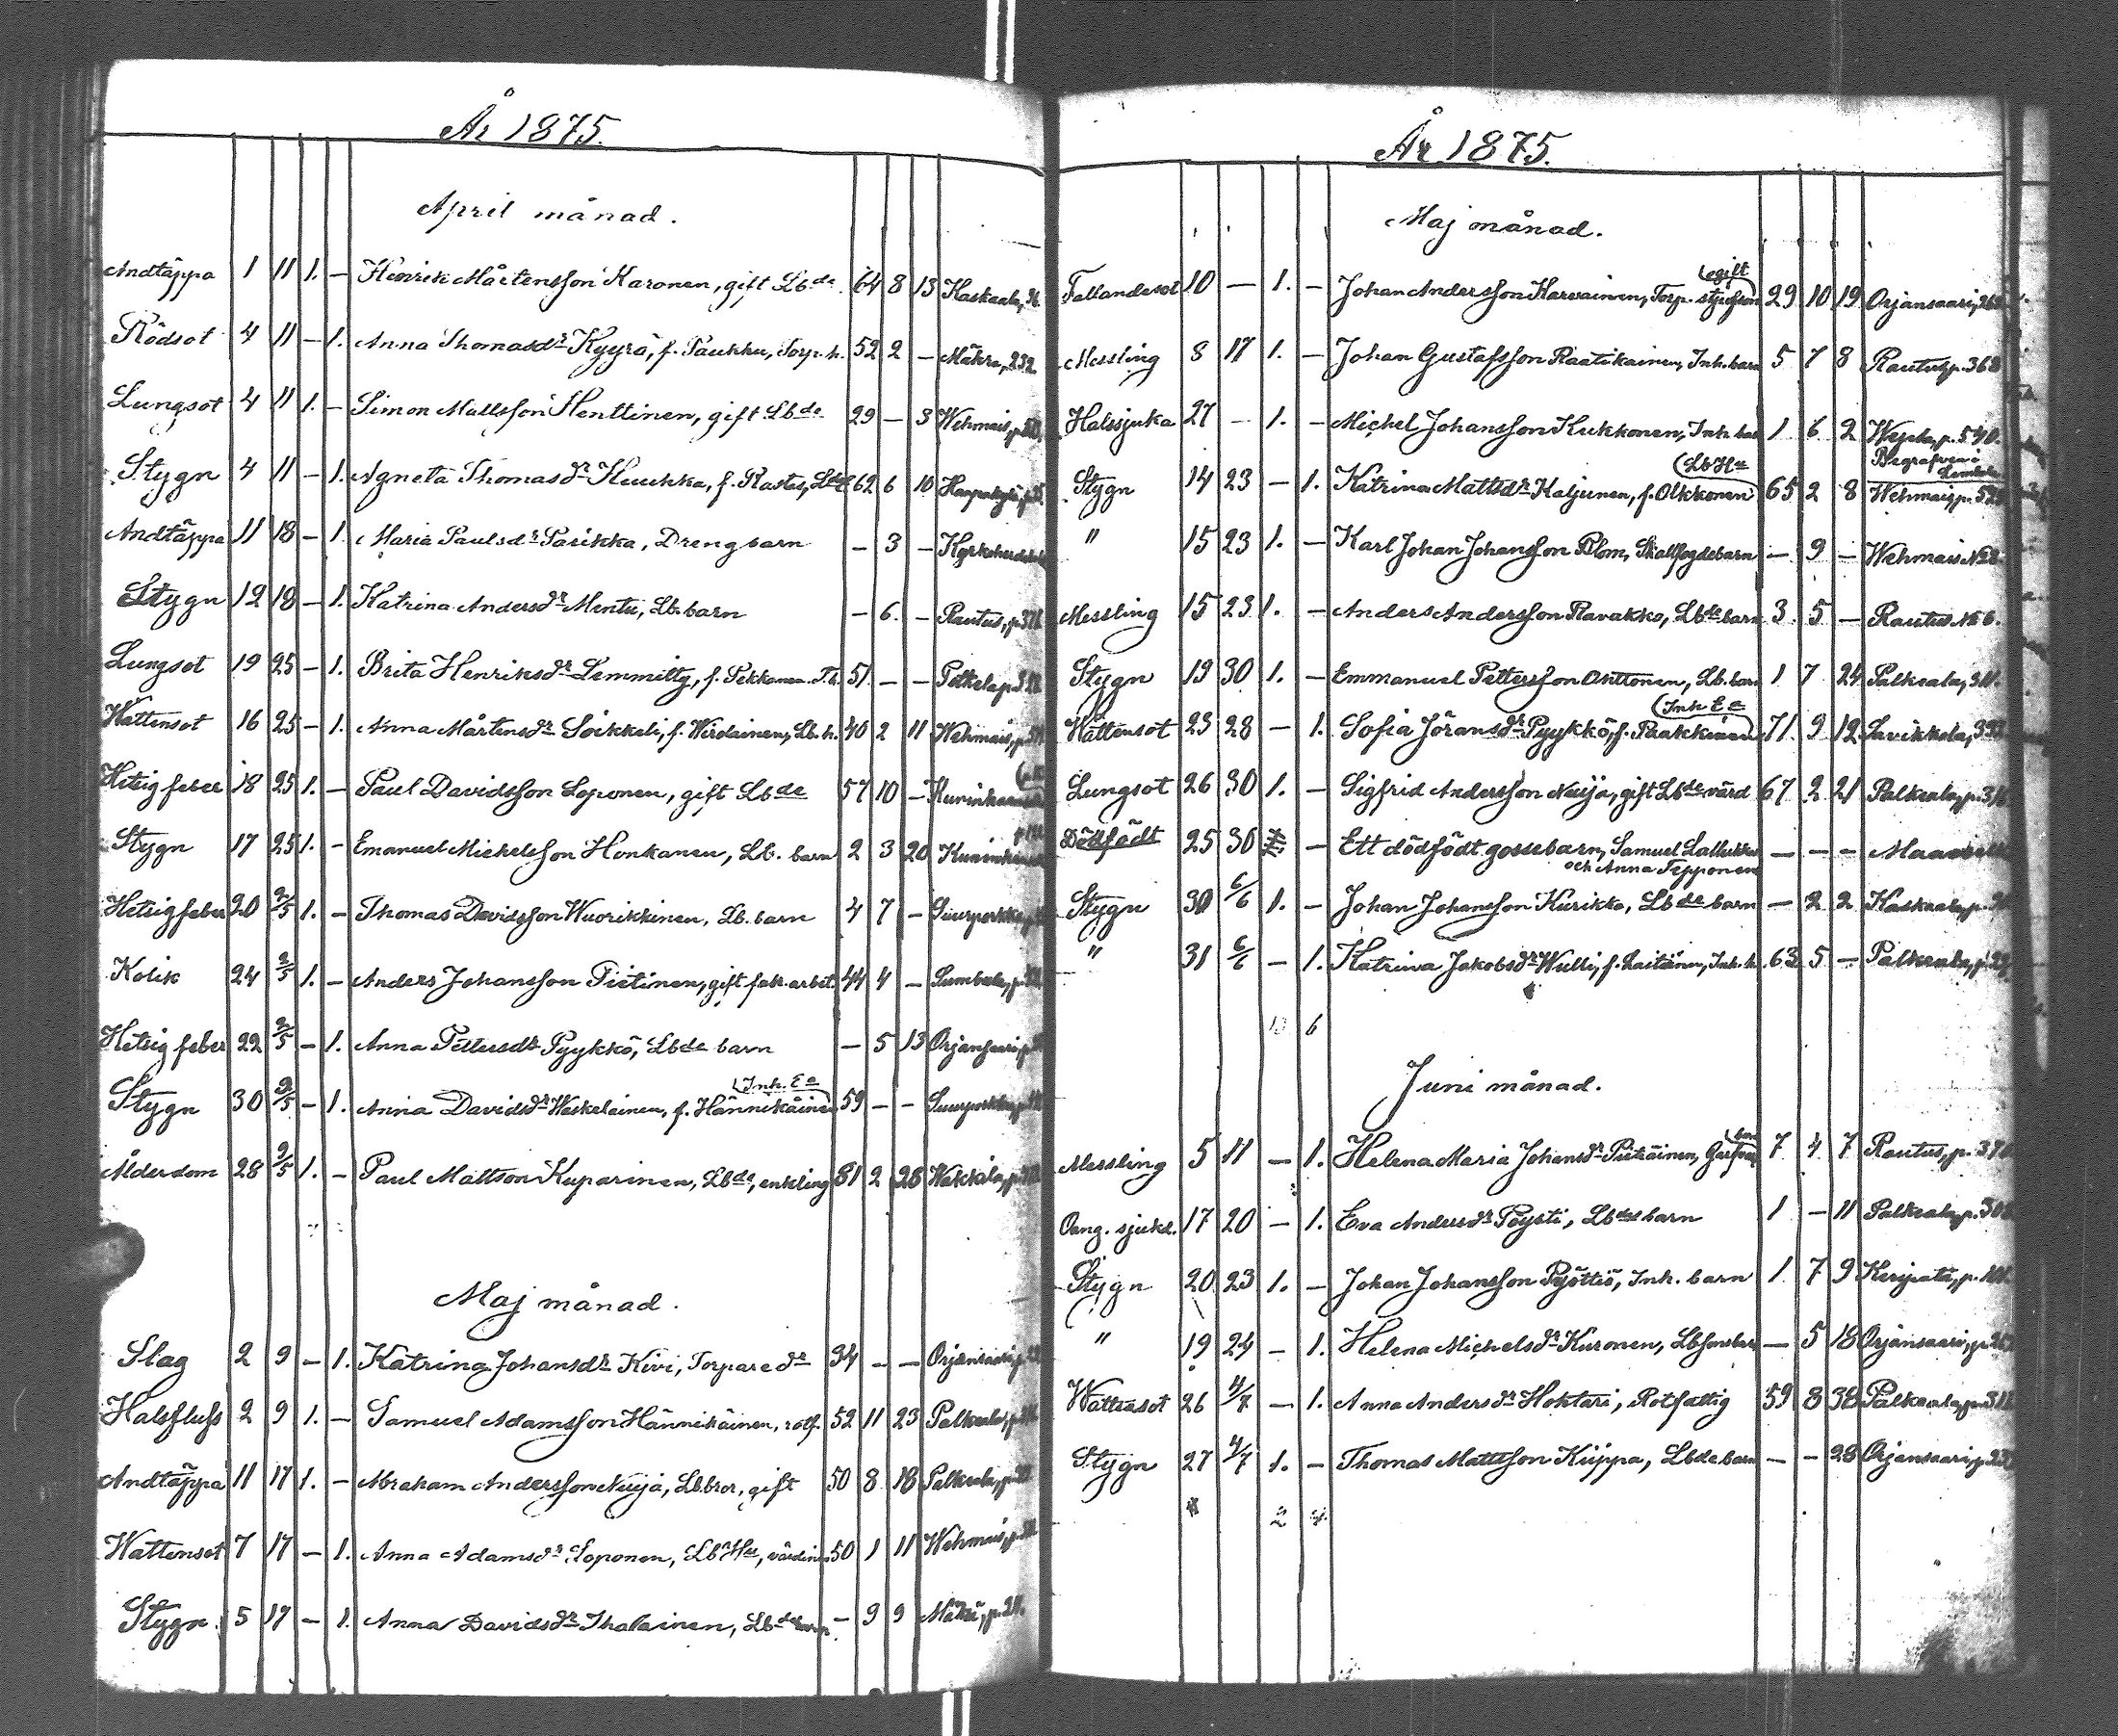 År 1875.
April månad.
Andtäppa 1 11 1. – Henrik Mårtensson Karonen, gift Lbde 64 8 13 Kaskaala,
Rödsot 4 11 – 1. Anna Thomasdr Kyyrä, f. Paukku, Torp. h. 52 2 – Mäkrä, 232
Lungsot 4 11 1. – Simon Mattsson Henttinen, gift Lbde 29 – 3 Wehmais, p.
Stygn 4 11 – 1. Agneta Thomasdr Kuukka, f. Rastas, 62 6 10
Andtäppa 11 18 – 1. Maria Paulsdr Parikka, Dreng barn – 3 –
Stygn 12 18 – 1. Katrina Andersdr Mentu, Lb. barn – 6. – Rautus, p.
Lungsot 19 25 – 1. Brita Henriksdr Lemmitty, f. Pekkanen. T.h. 51. – – Potkela p.
Wattensot 16 25 – 1. Anna Mårtensdr Soikkeli, f. Wirolainen, Lb. h. 40 2 11 Wehmais, p.
Hetsig feber 18 25 1. – Paul Davidsson Loponen, gift Lbde 57 10 –
Stygn 17 25 1. – Emanuel Mickelsson Honkanen, Lb. barn 2 3 20
Hetsig feber 20 2/5 1. – Thomas Davidsson Wuorikkinen, Lb. barn 4 7 – Suurporkku
Kolik 24 2/5 1. – Anders Johansson Pietinen, gift fabr. arbet. 44 4 – Sumbula, p.
Hetsig feber 22 2/5 – 1. Anna Pettersdr Pyykkö, Lbde barn – 5 13 Orjansaari p.
(Inh. Ea
Stygn 30 2/5 – 1. Anna Davidsdr Weskelainen, f. Hännikäinen 59 – – Suurporkku p.
Ålderdom 28 2/5 1. – Paul Mattson Kuparinen, Lbde, enkling 81 2 28 Wakkila, p.
Maj månad.
Slag 2 9 – 1. Katrina Johansdr Kivi, Torpare dr 34 – – Orjansaari p.
Halsfluss 2 9 1. – Samuel Adamsson Hännikäinen, rotf. 52 11 23 Palkeala, p.
Andtäppa 11 17 1. – Abraham Andersson Nuija, Lb. bror, gift 50 8 18 Palkeala, p.
Wattensot 7 17 – 1. Anna Adamsdr Loponen, Lb Hu, värdinna 50 1 11 Wehmais, p.
Stygn 5 17 – 1. Anna Davidsdr Ihalainen, Lbde barn – 9 9 Mäkrä, p.
År 1875.
Maj månad.
(gift
Fallandesot 10 – 1. – Johan Andersson Karvainen, Torp. styfson 29 10 19 Orjansaari,
Messling 8 17 1. – Johan Gustafsson Raatikainen, Inh. barn 5 7 8 Rautus p. 368
Halssjuka 27 – 1. – Michel Johansson Kukkonen, Inh. barn 1 6 2 p. 540.
Begrafven i
(Lb Ha
Stygn 14 23 – 1. Katrina Mattsdr Kaljunen, f. Olkkonen 65 2 8 Wehmais, p.
" 15 23 1. – Karl Johan Johansson Blom, Skallfogdebarn – 9 – Wehmais No 2.
Messling 15 23 1. – Anders Andersson Ravakko, Lbde barn 3. 5 – Rautus No 6.
Stygn 19 30 1. – Emmanuel Pettersson Outtonen, Lb. barn 1 7 24 Palkeala,
(Inh Ea
Wattensot 23 28 – 1. Sofia Jöransdr Pyykkö, f. Paakkinen 71. 9 12 Savikkola,
Lungsot 26 30 1. – Sigfrid Andersson Nuija, gift Lbde värd 67 2 21 Palkeala, p.
Dödfödt 25 30 – Ett dödfödt gossebarn, Samuel Lallukka – – –
och Anna Tepponen
Stygn 30 6/6 1. – Johan Johansson Kurikka, Lbde barn – 2 2 Kaskaala, p.
" 31 6/6 – 1. Katrina Jakobsdr Wulli, f. Laitinen, Inh. h. 63 5 – Palkeala, p.
6
Juni månad.
Messling 5 11 – 1. Helena Maria Johansdr Pietiäinen, 7 4 7 Rautus, p.
Oang. sjukd. 17 20 – 1. Eva Andersdr Pöysti, Lbdes barn 1 – 11 Palkeala, p.
Stygn 20 23 1. – Johan Johansson Pyöttiö, Inh. barn 1 7 9 Keripata, p.
" 19 24 – 1. Helena Michelsdr Kuronen, Lbsons barn – 5 18 Orjansaari, p.
Wattusot 26 4/7 – 1. Anna Andersdr Hoktari, Rotfattig 59 8 Palkeala, p.
Stygn 27 4/7 1. – Thomas Mattsson Kiippa, Lbde barn – – 28 Orjansaari, p.
2